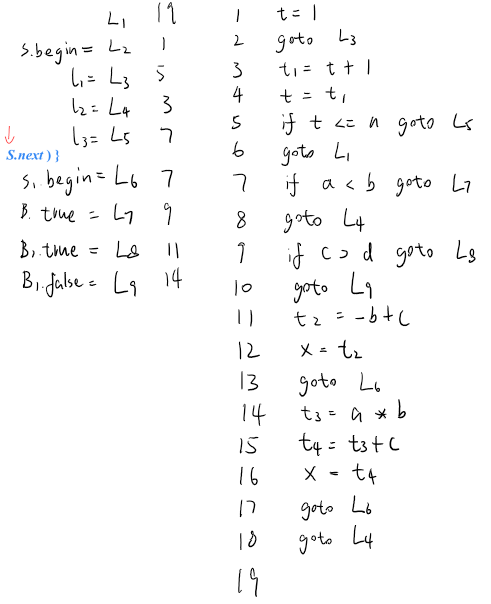 L₁ 19
S.begin = L₂ 1
l₁ = L₃ 5
l₂ = L₄ 3
l₃ = L₅ 7
S.next ) }
S₁.begin = L₆ 7
B.true = L₇ 9
B₁.true = L₈ 11
B₁.false = L₉ 14
1 t = 1
2 goto L₃
3 t₁ = t + 1
4 t = t₁
5 if t <= n goto L₅
6 goto L₁
7 if a < b goto L₇
8 goto L₄
9 if c > d goto L₈
10 goto L₉
11 t₂ = -b + c
12 x = t₂
13 goto L₆
14 t₃ = a * b
15 t₄ = t₃ + c
16 x = t₄
17 goto L₆
18 goto L₄
19